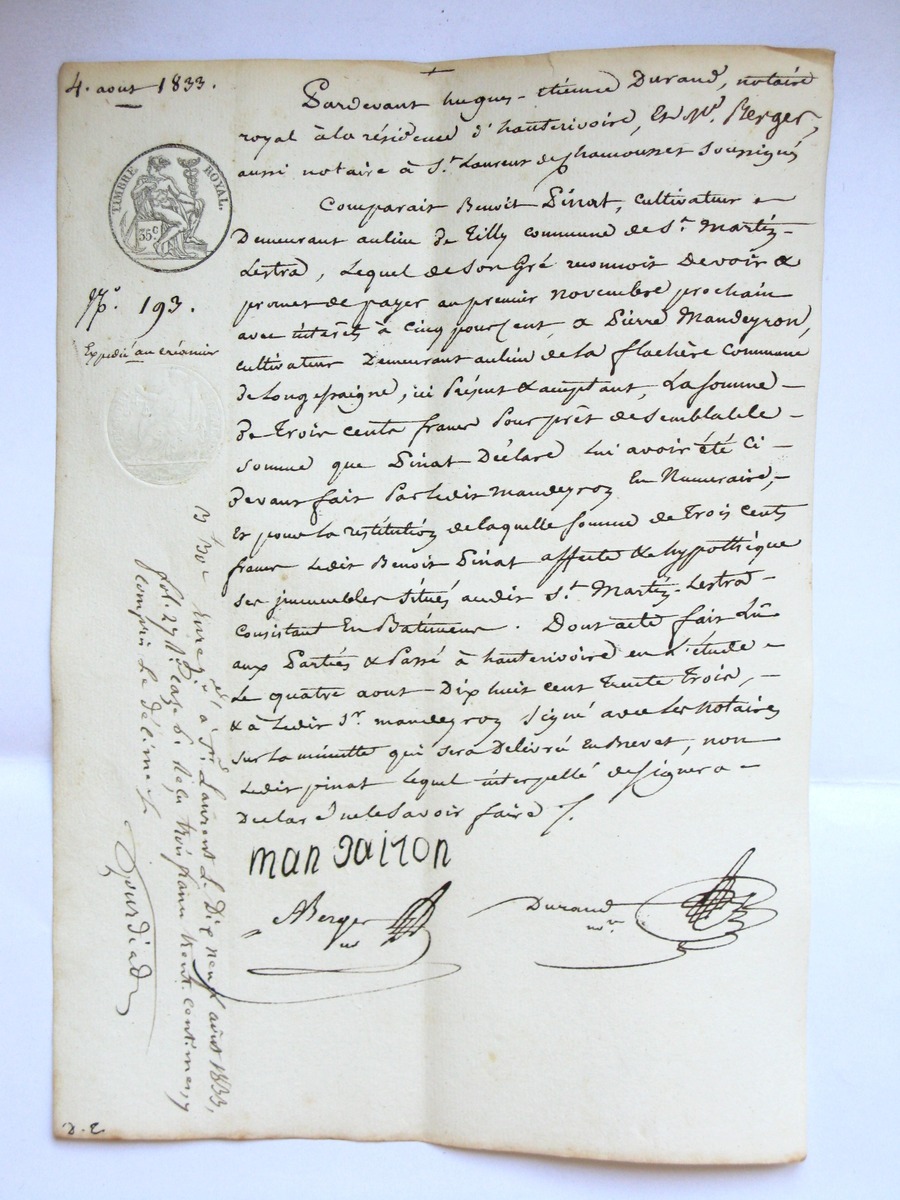 4. aout 1833.
TIMBRE ROYAL.
35 c
No. 193.
Expédié au créancier
Pardevant hugues-étienne Durand, notaire
royal à la résidence d'hauterivoire, Et Me. Berger,
aussi notaire à St. Laurent de Chamousset soussignés
Comparait Benoit Pinat, cultivateur
Demeurant au lieu de Tilly commune de St. Martin-
Lestra, Lequel de son Gré reconnoit Devoir &
promet de payer au premier novembre prochain
avec intérêts à Cinq pour Cent, a Pierre Mandeyron,
cultivateur Demeurant au lieu de la flachère commune
de Longessaigne, ici Présent & acceptant, La somme
De Trois cents francs Pour prêt de semblable
somme que Pinat Déclare Lui avoir été Ci-
Devant fait Par Ledit mandeyron En Numeraire,
Et pour La restitution de laquelle somme de Trois Cents
francs Ledit Benoit Pinat affecte & hypothèque
ses immeubles situés audit St. Martin-Lestra
Consistant En Batiments. Dont acte fait Lu
aux Parties & Passé à hauterivoire en L'étude
Le quatre aout Dix huit cent Trente Trois,
& à Ledit Sr. mandeyron signé avec Les Notaires
sur La minutte qui sera Délivré En Brevet, non
Ledit pinat Lequel interpellé de signer a
Déclaré ne le savoir faire
man dairon
ABerger
nre
Durand
nore
Enregistré à St. Laurent Le Dix neuf août 1833,
fol. 27 Ro. case 6. Reçu trois francs trente centimes, y
compris Le Décime
Gourdiad
D. E